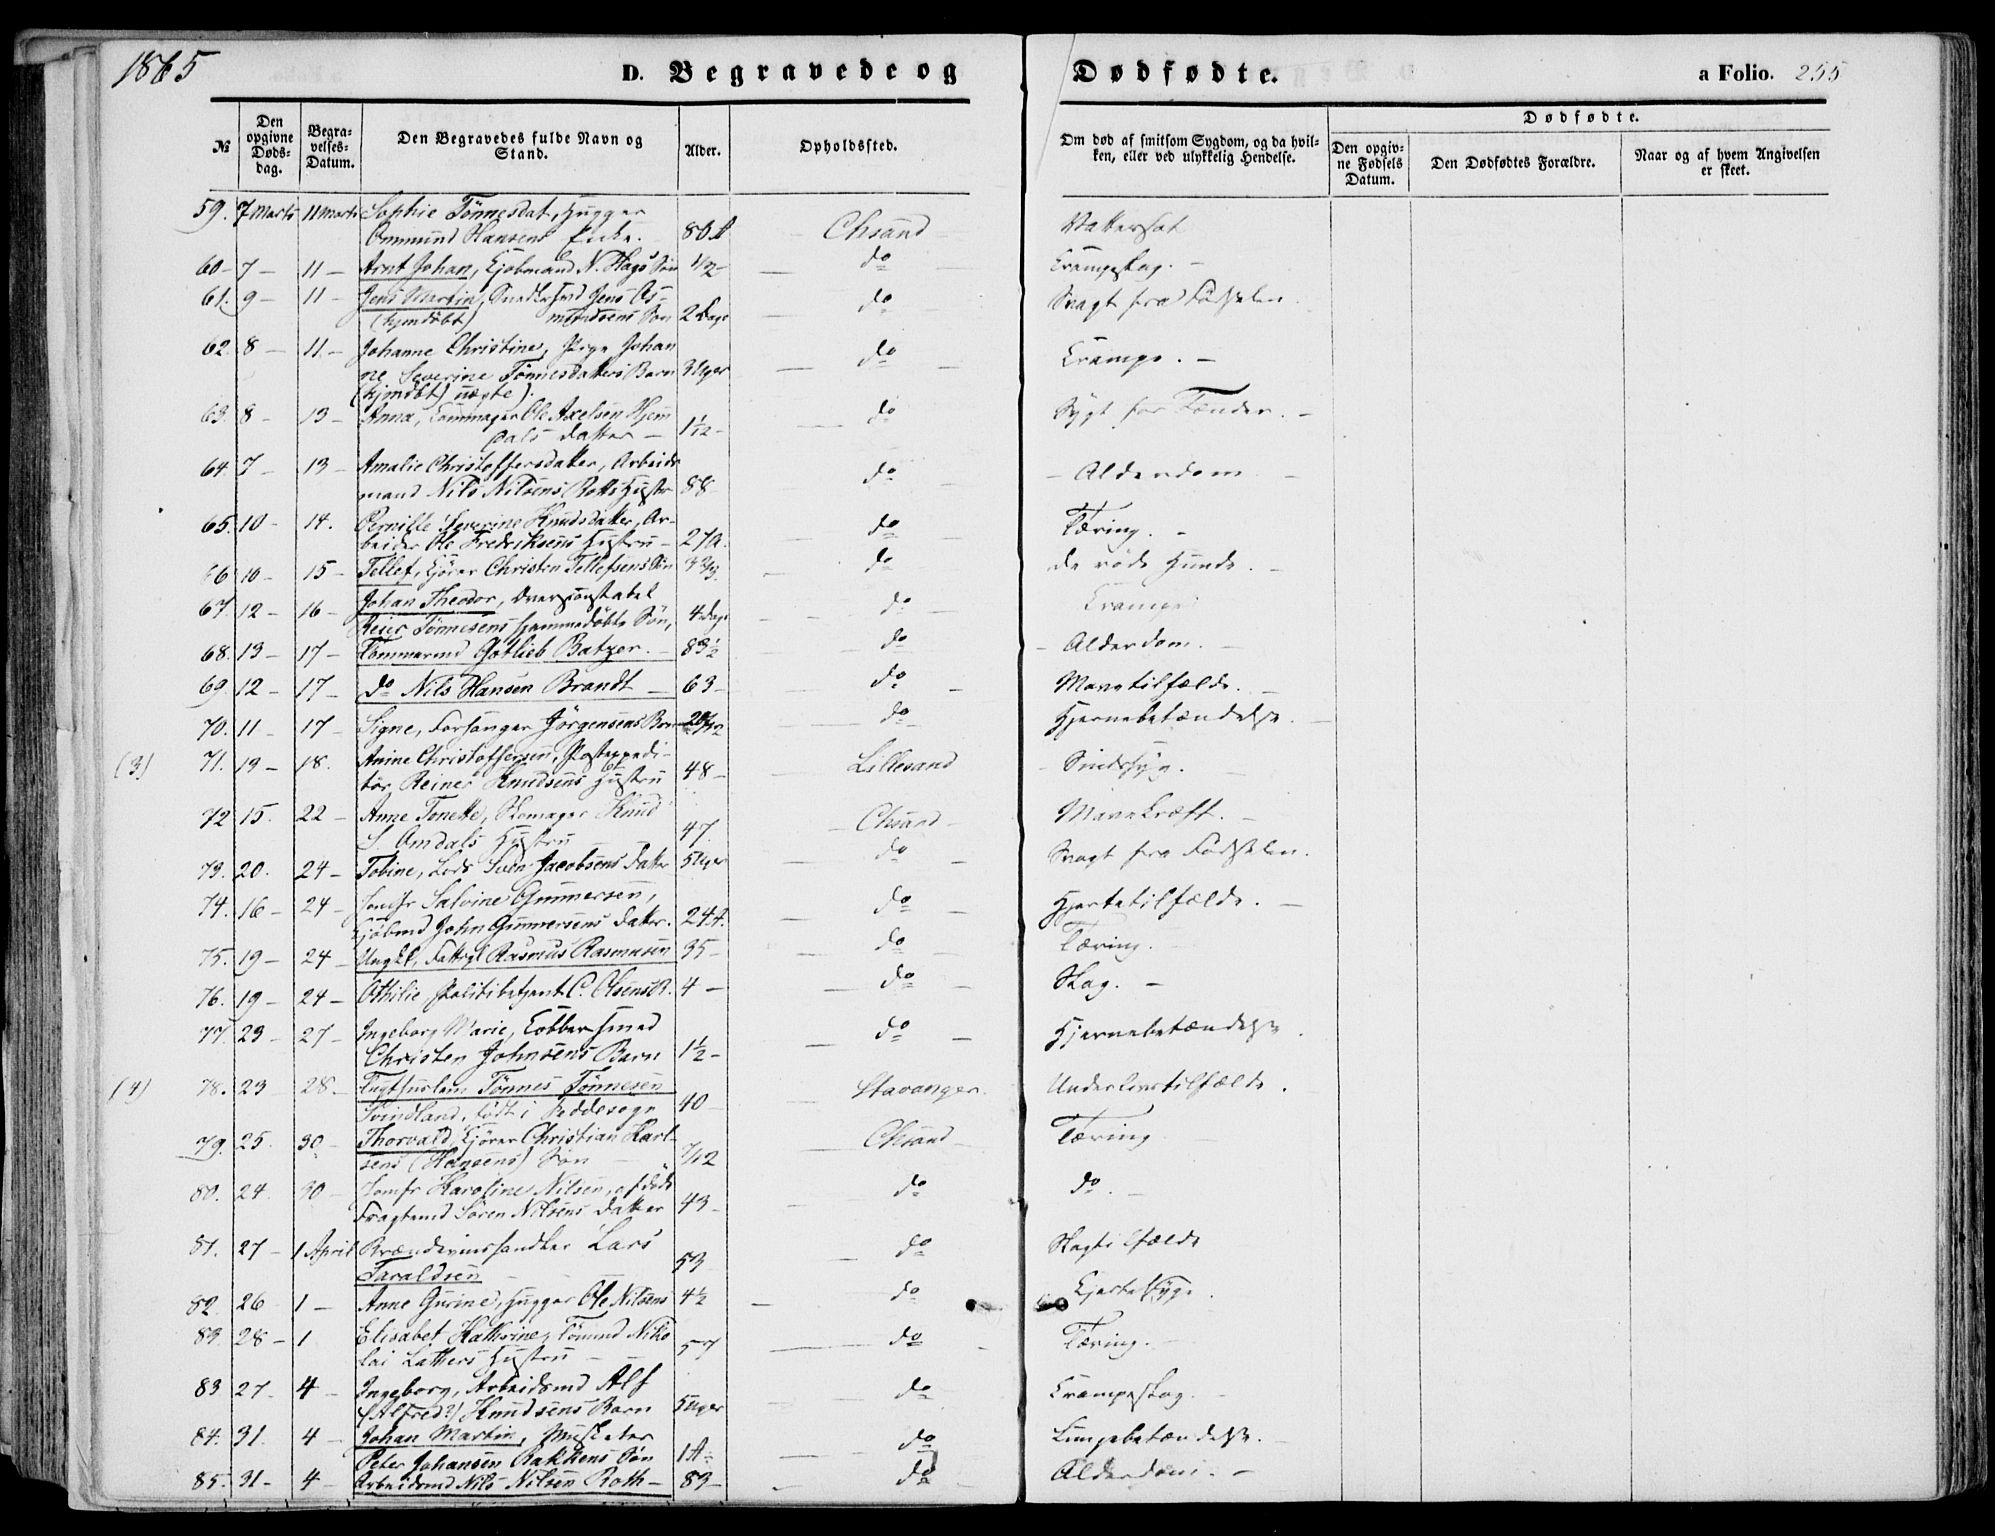 1865
D. Begravede og Dødfødte.
a Folio. 255
№
Den opgivne Døds-dag.
Begra-velses-Datum.
Den Begravedes fulde Navn og Stand.
Alder.
Opholdssted.
Om død af smitsom Sygdom, og da hvil-ken, eller ved ulykkelig Hendelse.
Dødfødte.
Den opgiv-ne Fødsels Datum.
Den Dødfødtes Forældre.
Naar og af hvem Angivelsen er skeet.
59. 7 Marts 11 Marts Sophie Tönnesdat, Hugger
Ommund Hansens Enke. 80 A Chsand Vattersot
60 - 7 - 11 - Arnt Johan, Kjøbmand N. Hags Søn 1/2 - do Krampeslag. -
61. 9 - 11 - Jens Martin, Snedkersvd Jens As-
(hjmdöbt) mundsens Søn 2 Dage do Svagt fra Fødselen.
62. 8 - 11 - Johanne Christine, Pige Johan
ne Severine Tönnesdatters Barn 3 Uger do Krampe. -
(hjmdöbt) uægte).
63. 8 - 13 - Anna, Ole Axelsen Hjem
dals Datter - 1 1/12 - do Sygt for Tænder. -
64. 7 - 13 - Amalie Christoffersdatter, Arbeids
mand Nils Nilsens Roths Hustru 88 do - Alderdom -
65. 10 - 14. Pernille Severine Knudsdatter, Ar-
beider Ole Fredriksens Hustru - 27 A. do Tæring. -
66 10 - 15 - Tellef, Kjører Christen Tellefsens Søn 3 2/3. do de røde Hunde. -
67. 12 - 16 - Johan Theodor, Overconstabel
Reier Tönnesens hjemmedöbte Søn, 4 Dage do Krampe
68. 13 - 17 - Tömmermd Gotlieb Batzer. - 83 1/2 do - Alderdom. -
69 12 - 17 - do Nils Hansen Brandt - 63 - do Mavetilfælde. -
70. 11 - 17 - Signe, Forsanger Jörgensens Barn do Hjernebetændelse. -
(3) 71. 13 - 18. Anine Christoffersen, Postexpedi-
tör Reiner Knudsens Hustru 48 - Lillesand - Sindssyg. -
72 15. 22 - Anne Tonette, Skomager Knud
S. Omdals Hustru 47 - Chsand - Mavekræft. -
73. 20. 24 - Tobine, Lods Sven Jacobsens Datter 5 Uger do Svagt fra Fødselen.
74. 16 - 24 - Jomfr Salvine Gunnersen,
Kjöbmd John Gunnersens Datter. 24 A. do Hjertetilfælde. -
75. 19 - 24 - Ungkl, Fattigl Rasmus Rasmusen 35 - do Tæring.
76. 19 - 24 - Othilie Politibetjent C. Olsens B. 4 - do Slag. -
77. 23 - 27 - Ingeborg Marie, Kobbersmed
Christen Johnsens Barn 1 1/2 - do Hjernebetændelse.
(4) 78. 23 28. Tugthuslem Tönnes Tönnesen
Svindland, født i Feddesogn 40 - Stavanger. Underlivstilfælde.
79. 25. 30 - Thorvald, Kjörer Christian Karl-
sens (Hansens) Søn - 7/12 Chsand - Tæring
80. 24. 30 - Jomfr Karoline Nilsen, afdøde
Fragtemd Sören Nilsens Datter 43 - do do. -
81. 27 - 1 April Brændevinshandler Lars
Taraldsen 53 do Slagtilfælde
82. 26 1 - Anne Gurine, Hugger Ole Nilsens 4 1/2 - do Hjertesyge.
83. 28 - 1 Elisabet Kathrine, Tömmd Niko
lai Lathers Hustru - - 57 do Tæring. -
83 27 - 4 - Ingeborg, Arbeidsmd Alf
(Alfred?) Knudsens Barn 5 Uger do Krampeslag. -
84. 31. 4 - Johan Martin, Musketer
Peter Johansen Bakkens Søn 1 A - do Lungebetændelse. -
85. 31 - 4 - Arbeidsmd Nils Nilsen Roth - 83 - do Alderdom. -